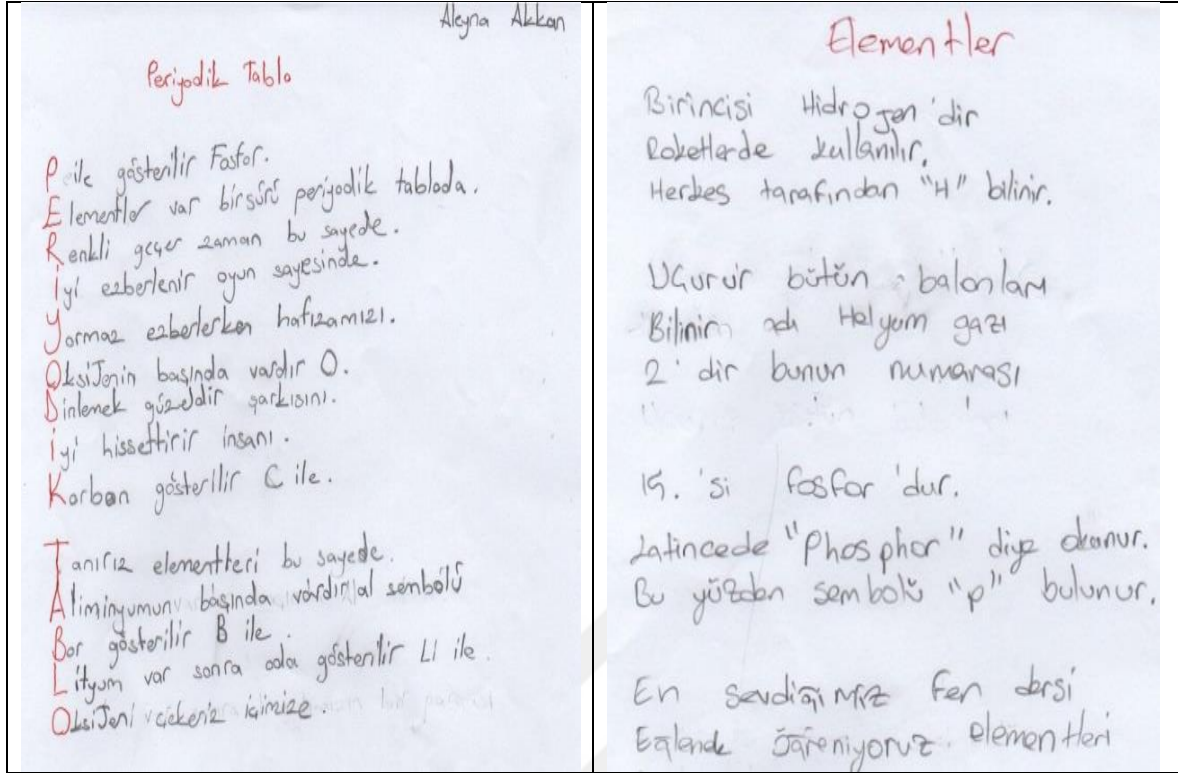 Aleyna Akkan
Periyodik Tablo
P ile gösterilir Fosfor.
Elementler var birsürü periyodik tabloda.
Renkli geçer zaman bu sayede.
İyi ezberlenir oyun sayesinde.
Yormaz ezberlerken hafızamızı.
OksiJenin başında vardır O.
Dinlemek güzeldir şarkısını.
İyi hissettirir insanı.
Karbon gösterilir C ile.
Tanırız elementleri bu sayede.
Aliminyumun başında vardır al sembolü
Bor gösterilir B ile.
Lityum var sonra oda gösterilir LI ile.
OksiJeni çekeriz içimize.
Elementler
Birincisi Hidrojen'dir
Roketlerde kullanılır.
Herkes tarafından "H" bilinir.
Uçurur bütün balonları
Bilinir adı Helyum gazı
2'dir bunun numarası
15.'si fosfor'dur.
Latincede "Phosphor" diye okunur.
Bu yüzden sembolü "p" bulunur.
En sevdiğimiz Fen dersi
Eğlende öğreniyoruz elementleri